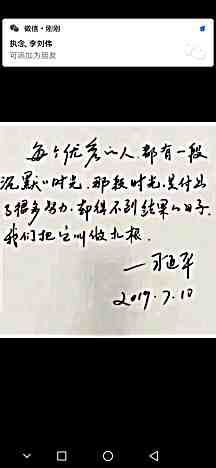 微信・刚刚
执念, 李刘伟
可添加为朋友
每个优秀的人，都有一段
沉默的时光，那段时光，是付出
了很多努力，却得不到结果的日子，
我们把它叫做扎根。
2019.7.10